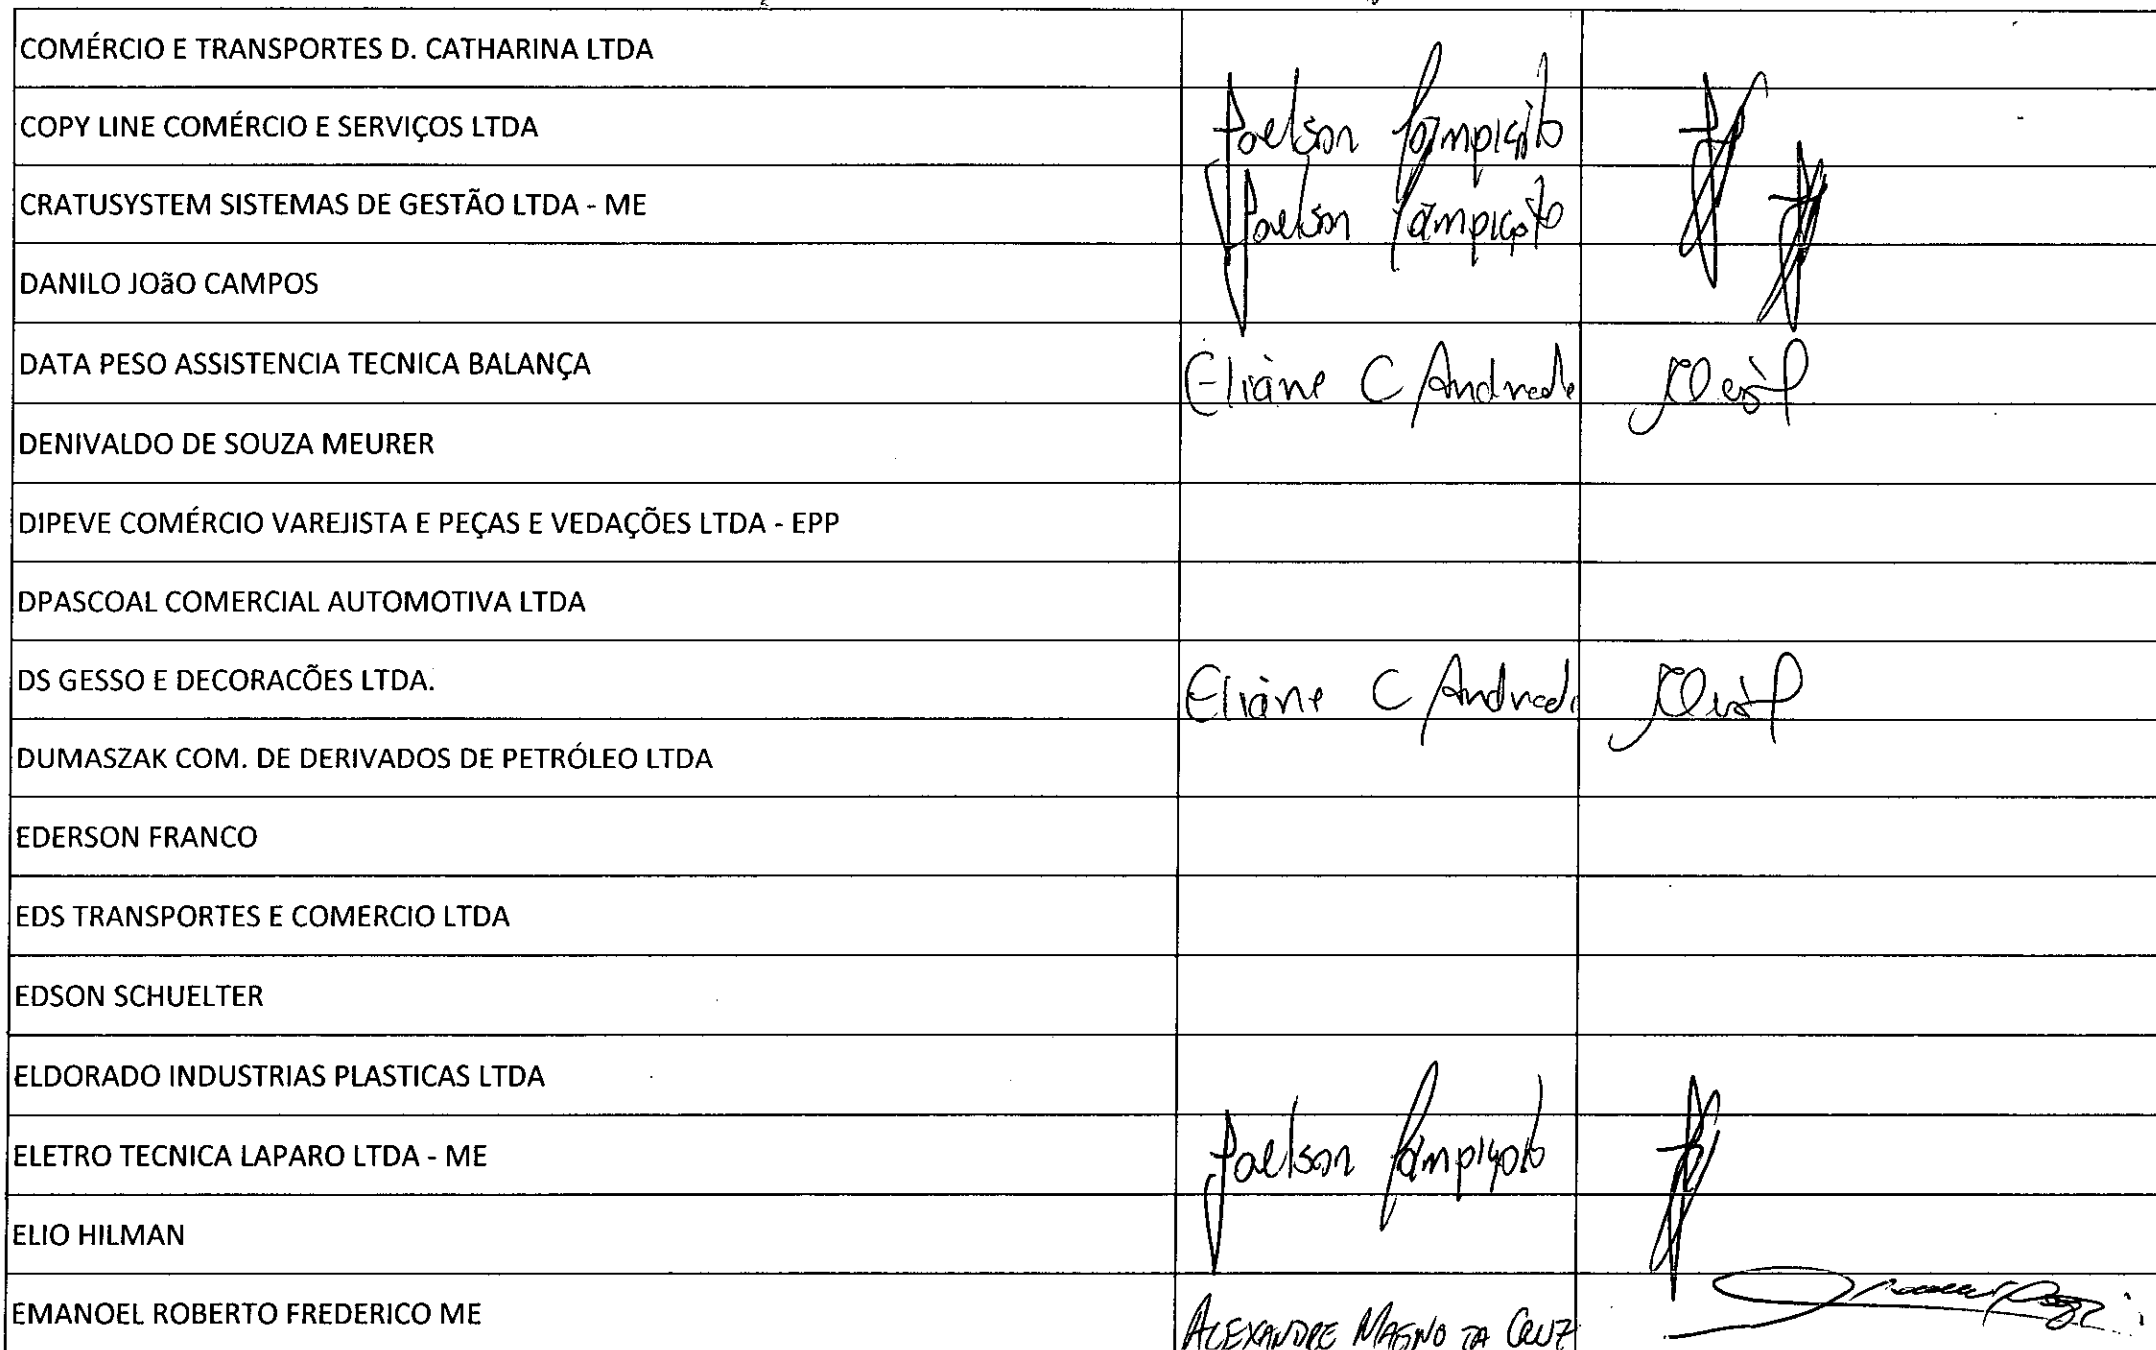 COMÉRCIO E TRANSPORTES D. CATHARINA LTDA
COPY LINE COMÉRCIO E SERVIÇOS LTDA Joelson
CRATUSYSTEM SISTEMAS DE GESTÃO LTDA - ME Joelson
DANILO JOãO CAMPOS
DATA PESO ASSISTENCIA TECNICA BALANÇA Eliane C Andrade
DENIVALDO DE SOUZA MEURER
DIPEVE COMÉRCIO VAREJISTA E PEÇAS E VEDAÇÕES LTDA - EPP
DPASCOAL COMERCIAL AUTOMOTIVA LTDA
DS GESSO E DECORACÕES LTDA. Eliane C Andrade
DUMASZAK COM. DE DERIVADOS DE PETRÓLEO LTDA
EDERSON FRANCO
EDS TRANSPORTES E COMERCIO LTDA
EDSON SCHUELTER
ELDORADO INDUSTRIAS PLASTICAS LTDA
ELETRO TECNICA LAPARO LTDA - ME Joelson
ELIO HILMAN
EMANOEL ROBERTO FREDERICO ME ALEXANDRE MAGNO DA CRUZ